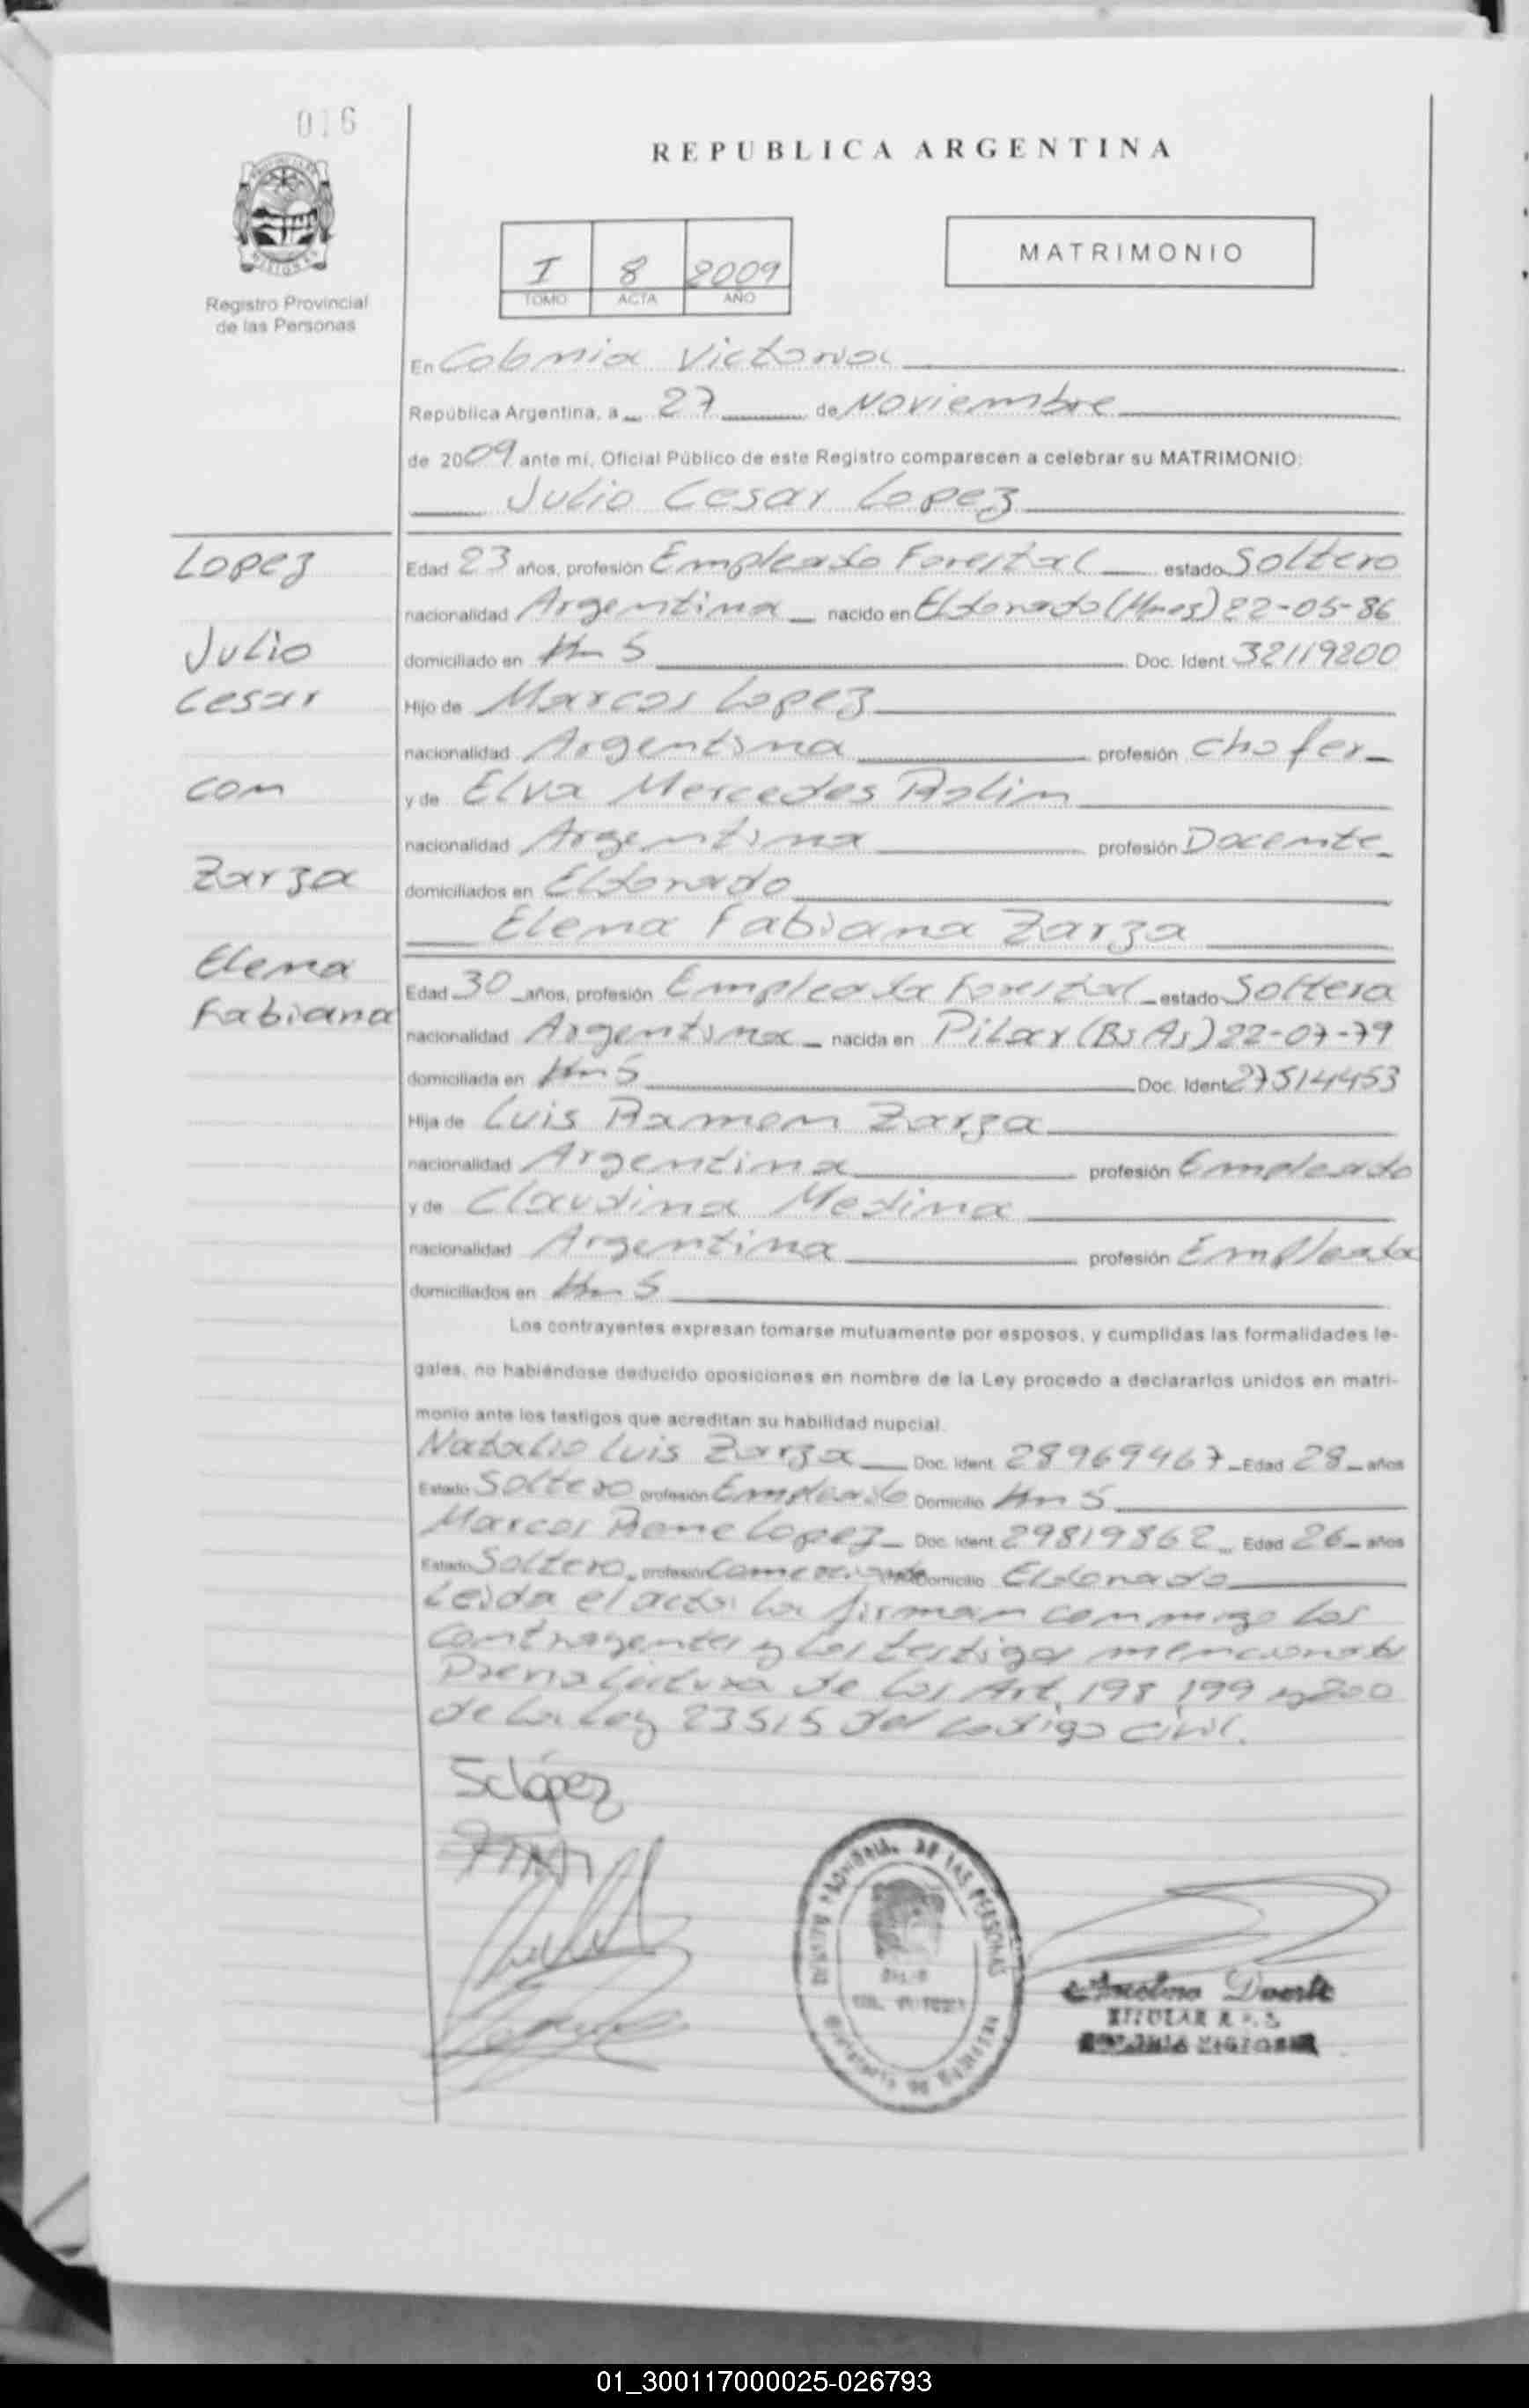 016
REPUBLICA ARGENTINA
MATRIMONIO
I 8 2009
TOMO ACTA AÑO
Registro Provincial
de las Personas
En Colonia Victoria
República Argentina, a 27 de Noviembre
de 2009 ante mí, Oficial Público de este Registro comparecen a celebrar su MATRIMONIO:
Julio Cesar Lopez
Lopez
Julio
Cesar
con
Zarza
Elena
Fabiana
Edad 23 años, profesión Empleado Forestal estado Soltero
nacionalidad Argentina nacido en Eldorado (Mnes) 22-05-86
domiciliado en Km 5 Doc. Ident. 32119200
Hijo de Marcos Lopez
nacionalidad Argentina profesión chofer
y de Elva Mercedes Rolim
nacionalidad Argentina profesión Docente
domiciliados en Eldorado
Elena Fabiana Zarza
Edad 30 años, profesión Empleada Forestal estado Soltera
nacionalidad Argentina nacida en Pilar (Bs As) 22-07-79
domiciliada en Km 5 Doc. Ident 27514453
Hija de Luis Ramon Zarza
nacionalidad Argentina profesión Empleado
y de Claudina Medina
nacionalidad Argentina profesión Empleada
domiciliados en Km 5
Los contrayentes expresan tomarse mutuamente por esposos, y cumplidas las formalidades le-
gales, no habiéndose deducido oposiciones en nombre de la Ley procedo a declararlos unidos en matri-
monio ante los testigos que acreditan su habilidad nupcial.
Natalio Luis Zarza Doc. Ident. 28969467 Edad 28 años
Estado Soltero profesión Empleado Domicilio Km 5
Marcos Rene Lopez Doc. Ident. 29819862 Edad 26 años
Estado Soltero profesión Comerciante Domicilio Eldorado
Leida el acta la firman conmigo los
contrayentes y los testigos mencionados
Previa lectura de los Art. 198 199 y 200
de la Ley 23515 del codigo civil.
López
REGISTRO PROVINCIAL DE LAS PERSONAS
COL. VICTORIA
Anselmo Duarte
TITULAR R.P.S
COLONIA VICTORIA
01_300117000025-026793